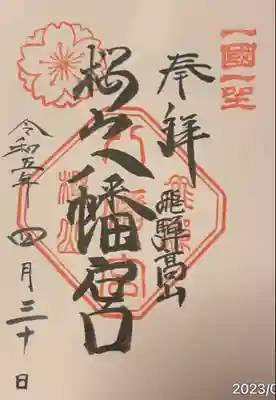 一國一社
奉拜
飛騨高山
桜山八幡宮
令和五年
四月三十日
2023/0